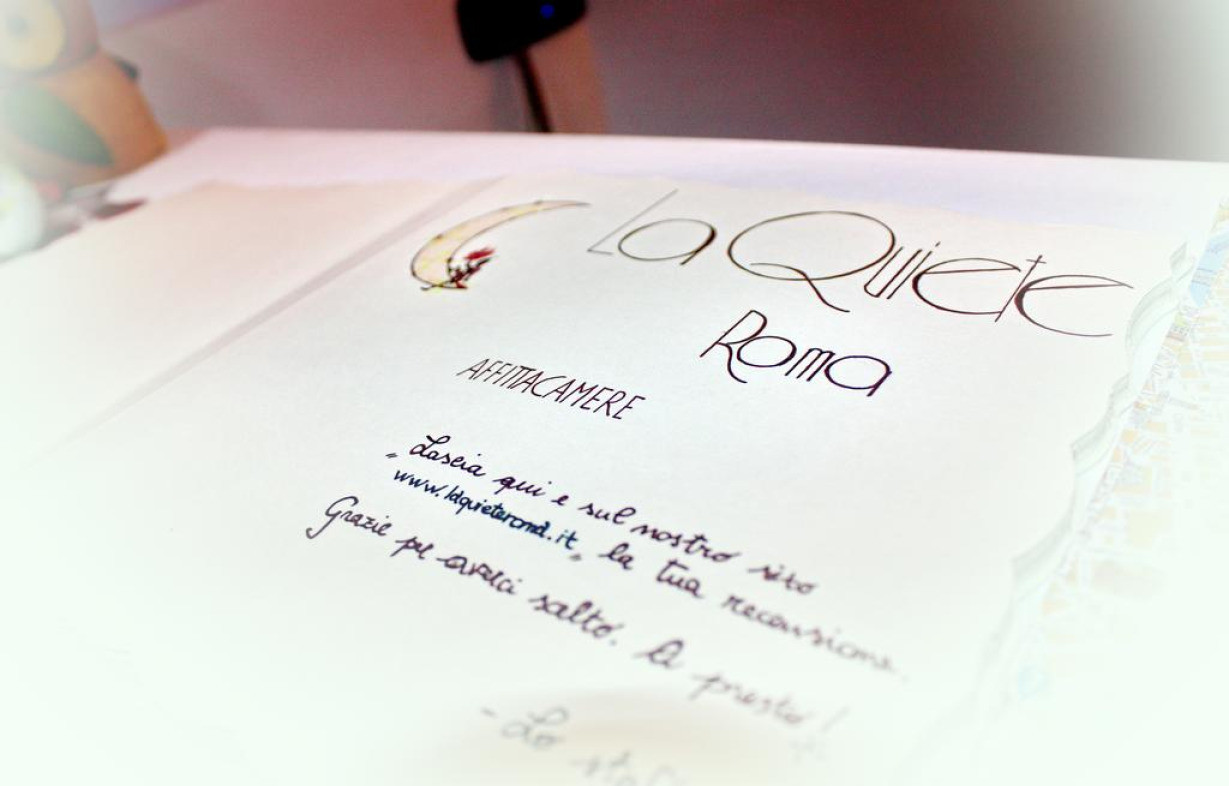 La Quiete
Roma
AFFITTACAMERE
„Lascia qui e sul nostro sito
www.laquieteroma.it„ la tua recensione.
Grazie per averci salto. A presto!
- Lo staff